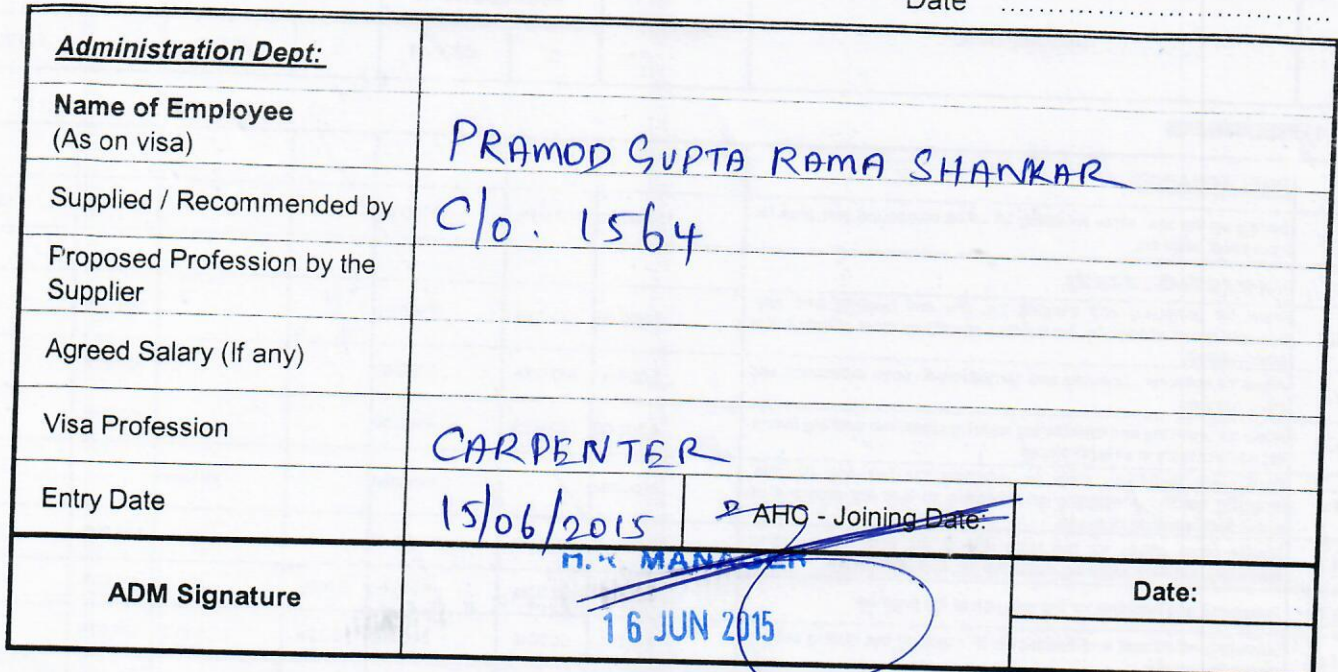 Date ..............................
Administration Dept:
Name of Employee
(As on visa)
PRAMOD GUPTA RAMA SHANKAR
Supplied / Recommended by
C/o. 1564
Proposed Profession by the
Supplier
Agreed Salary (If any)
Visa Profession
CARPENTER
Entry Date
15/06/2015
AHC - Joining Date:
MANAGER
ADM Signature
16 JUN 2015
Date: